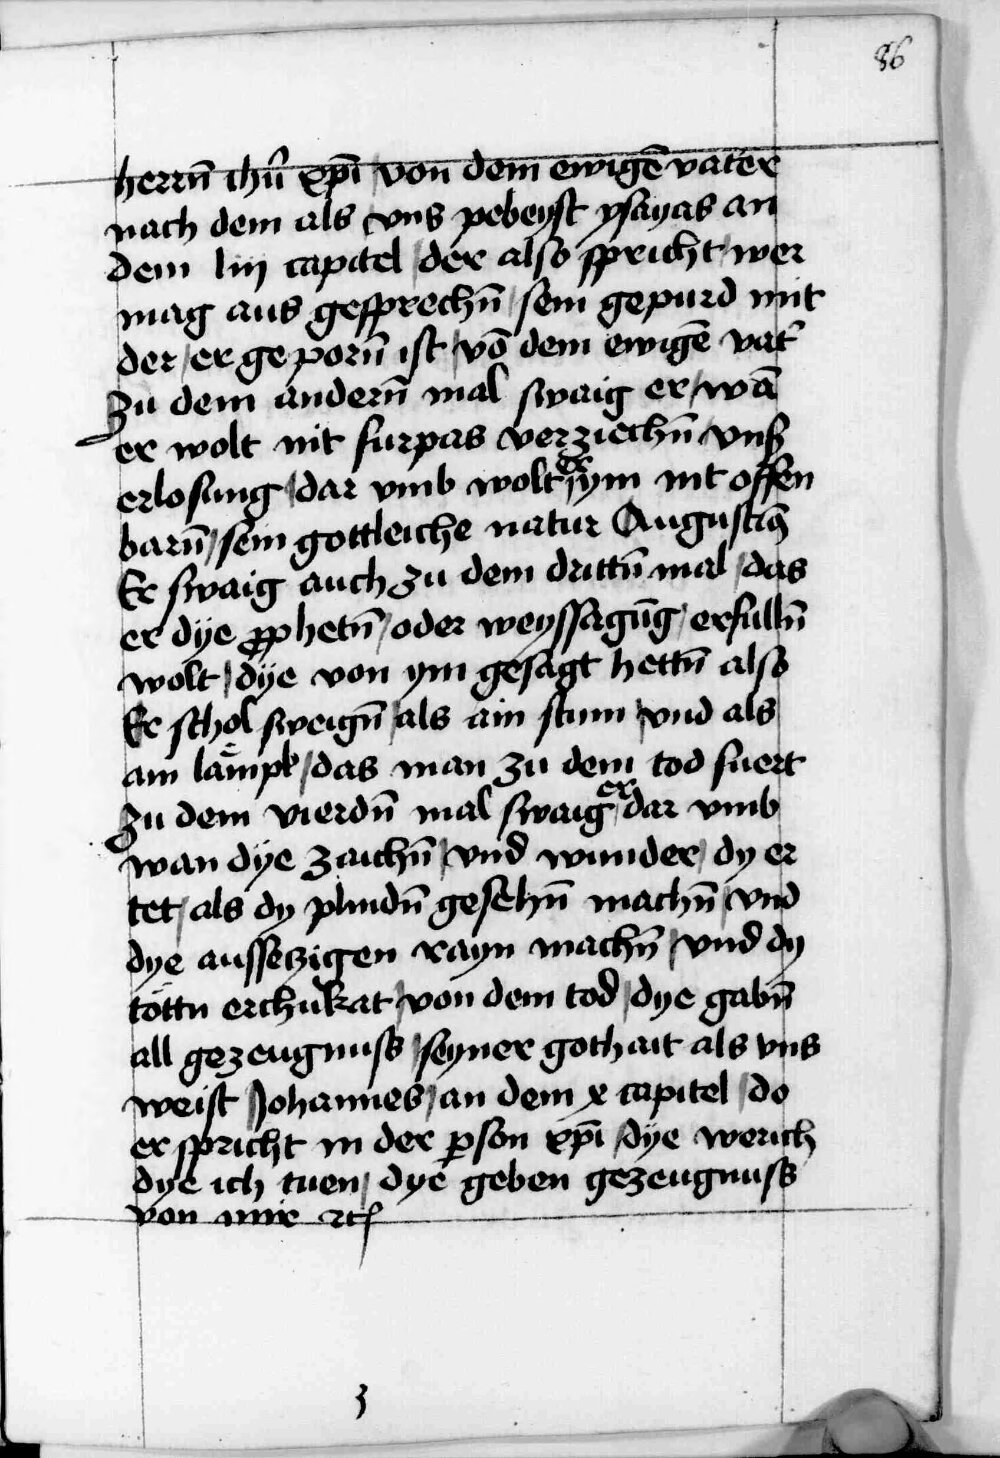 86
herrn̄ ihū xp̄i von dem ewigē vater
nach dem als vns pebeyst ysayas an
dem liij capitel der also spricht wer
mag aus gesprechn̄ sein gepurd mit
der er geporn̄ ist vō dem ewigē vat̓
Zu dem andern̄ mal swaig er wā
er wolt nit furpas verziechn̄ vnß
erlosung dar vmb wolt er ym nit offen
barn̄ sein gottleiche natur Augustinꝰ
Er swaig auch zu dem drittn̄ mal das
er dÿe ꝓphetn̄ oder weyssagūg erfulln̄
wolt dÿe von ym gesagt hettn̄ also
Er schol sweign̄ als ain stum vnd als
ain lämpl das man zu dem tod fuert
Zu dem vierdn̄ mal swaig er dar vmb
wan dÿe zaichn̄ vnd wunder dy er
tet als dy plindn̄ gesehn̄ machn̄ vnd
dye aussetzigen rayn machn̄ vnd dy
töttn erchukat von dem tod dye gabn̄
all gezeugnuss seyner gothait als vns
weist Johannes an dem x capitel do
er spricht in der ꝑson xp̄i dÿe werich
dye ich tuen dye geben gezeugnuss
von mir ꝛc
3